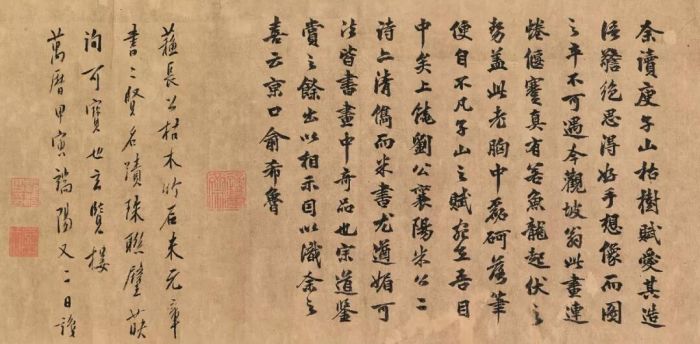 余讀庾子山枯樹賦愛其造
語贍絕思得好手想像而圖
之卒不可遇今觀坡翁此畫連
蜷偃蹇真有若魚龍起伏之
勢蓋此老胸中磊砢落筆
便自不凡子山之賦宛在吾目
中矣上饒劉公襄陽米公二
詩亦清儁而米書尤遒媚可
法皆書畫中奇品也宗道鑒
賞之餘出以相示因以識余之
喜云京口俞希魯
蘇長公枯木竹石米元章
書二賢名蹟珠聯璧映
洵可寶也玄覽樓
萬曆甲寅端陽又二日識